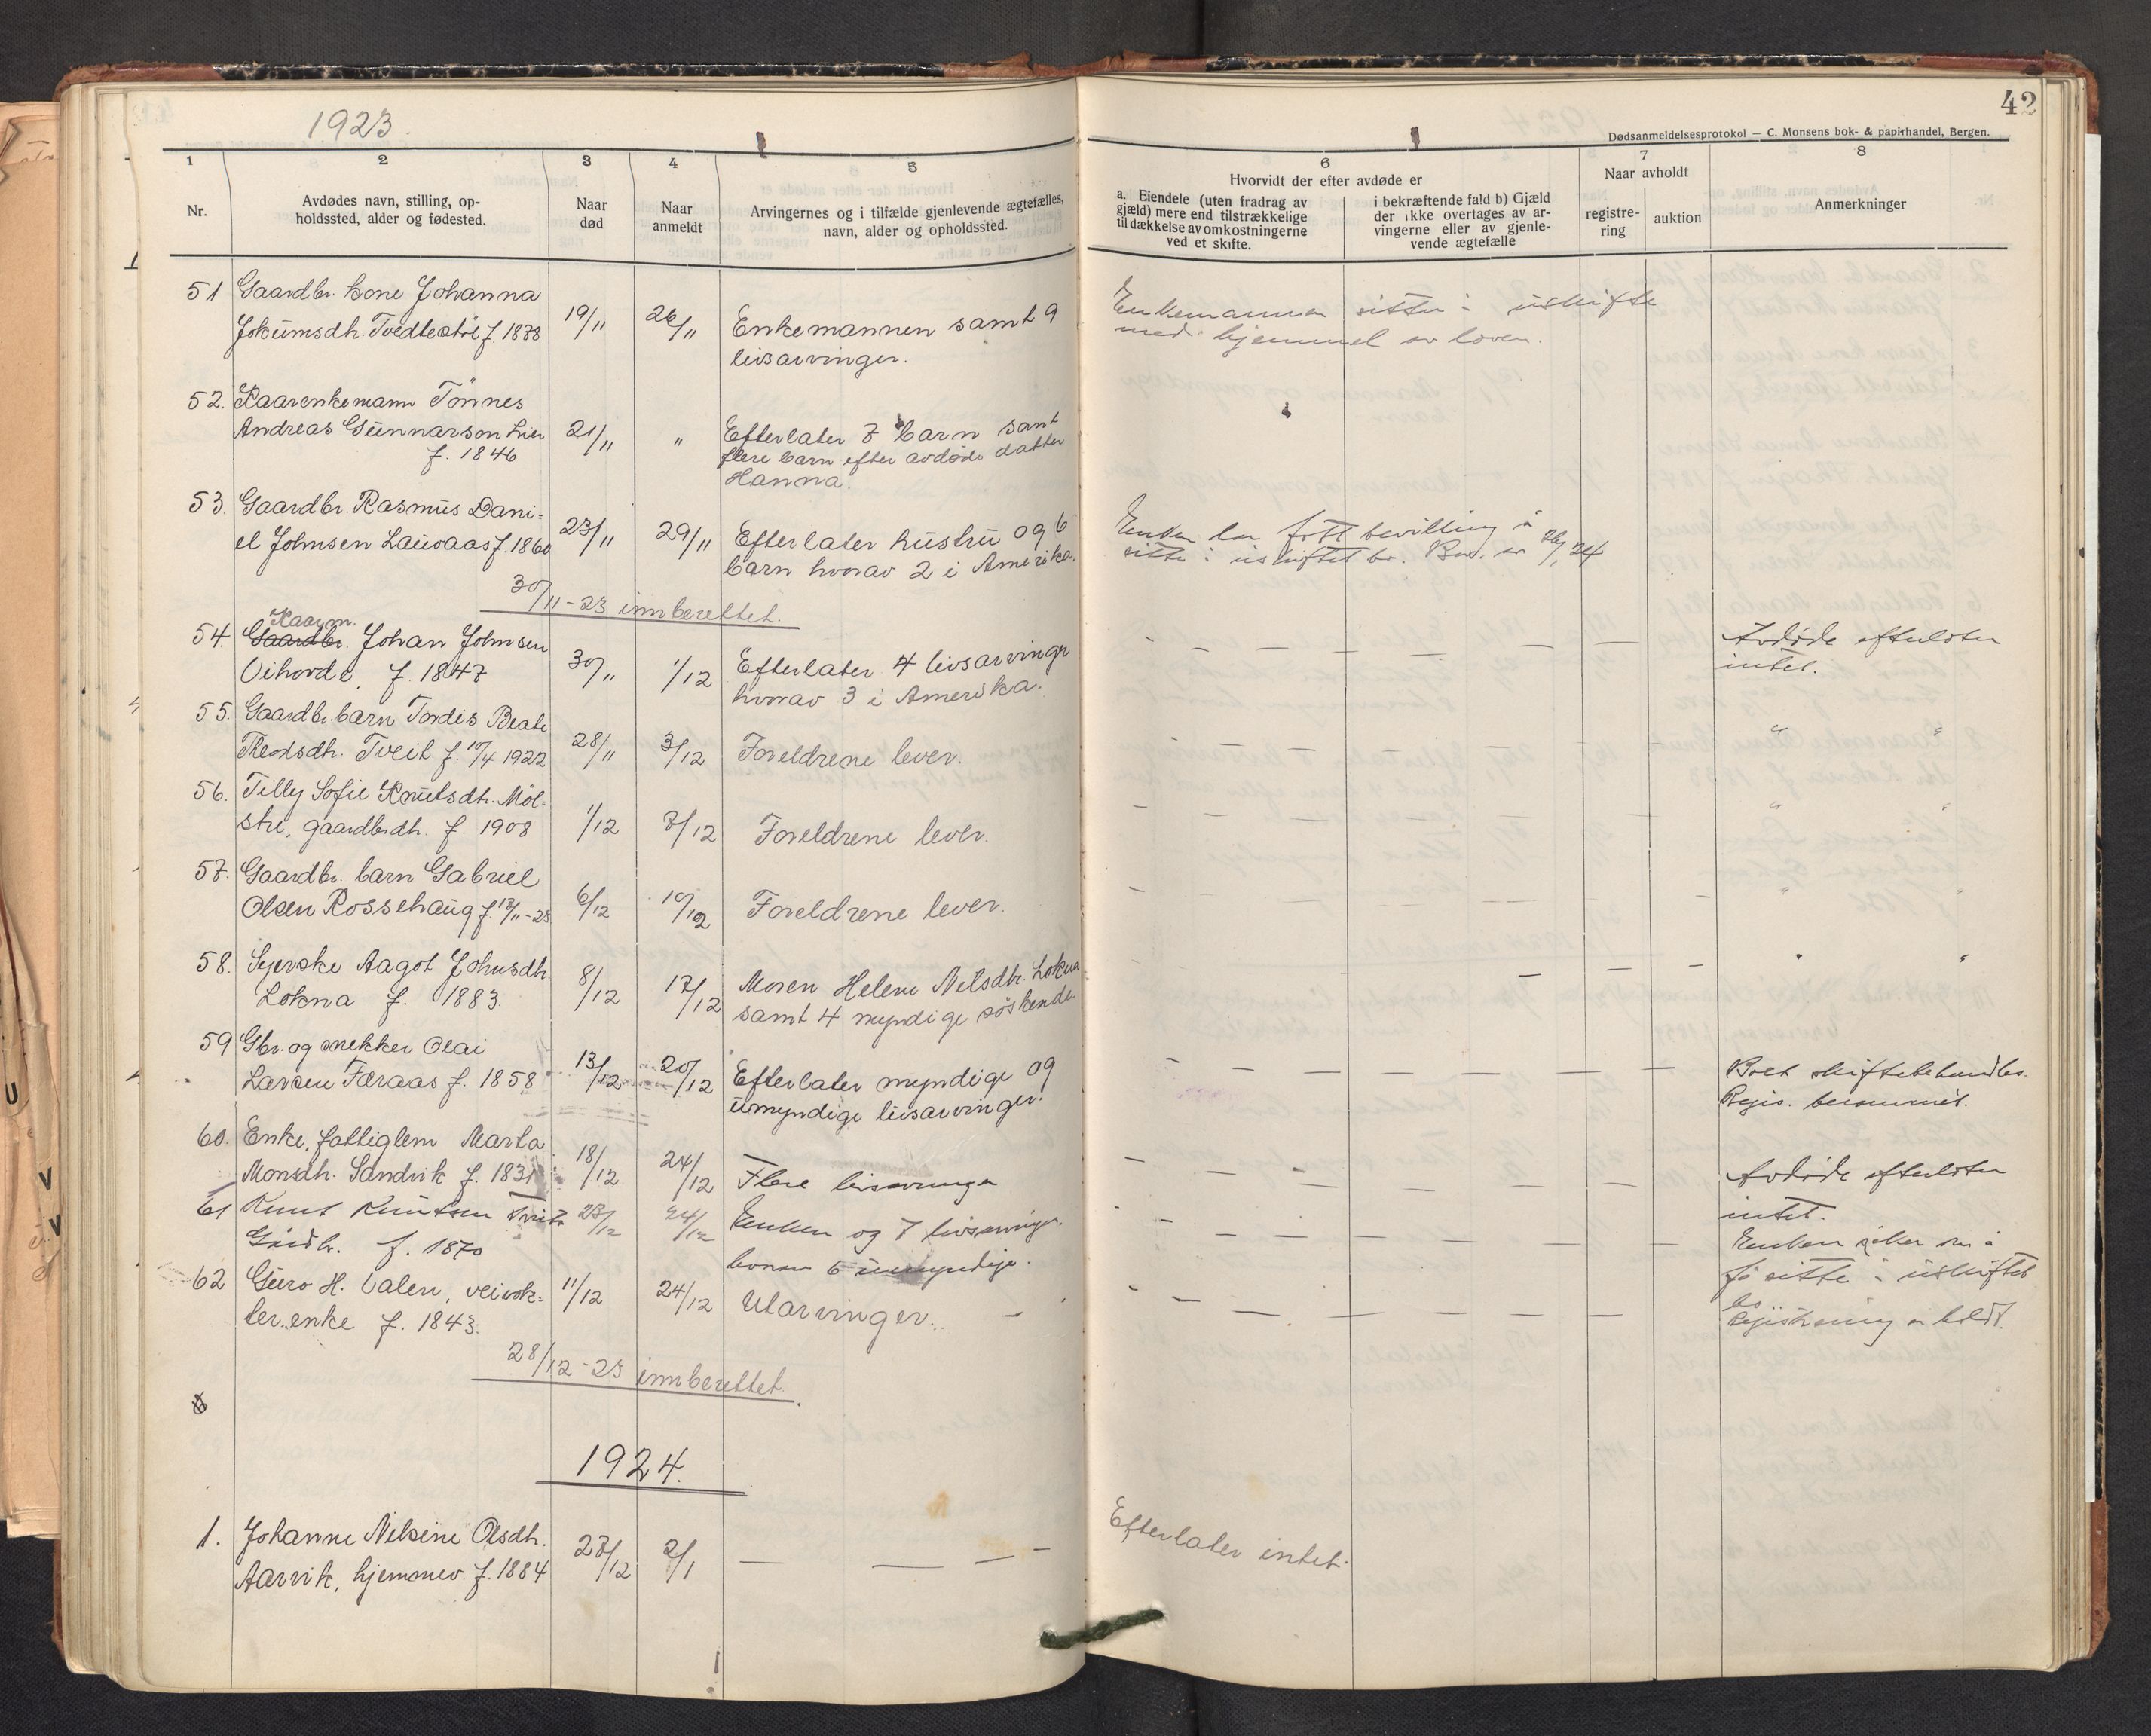 1923.
42
Dødsanmeldelsesprotokol — C. Monsens bok- & papirhandel, Bergen.
1
2
3
4
5
6
7
8
Nr.
Avdødes navn, stilling, op-
holdssted, alder og fødested.
Naar
død
Naar
anmeldt
Arvingernes og i tilfælde gjenlevende ægtefælles,
navn, alder og opholdssted.
Hvorvidt der efter avdøde er
a. Eiendele (uten fradrag av
gjæld) mere end tilstrækkelige
til dækkelse av omkostningerne
ved et skifte.
i bekræftende fald b) Gjæld
der ikke overtages av ar-
vingerne eller av gjenle-
vende ægtefælle
Naar avholdt
registre-
ring
auktion
Anmerkninger
51 Gaardbr. kone Johanna
Jokumsdh. Tvedtestöl f. 1878
19/11
26/11
Enkemannen samt 9
livsarvinger.
Enkemannen sitter i uskifte
med hjemmel av loven.
52. Kaarenkemann Tönnes
Andreas Gunnarson Lier
f. 1846
21/11
"
Efterlater 7 barn samt
flere barn efter avdöde datter
Hanna.
53. Gaardbr. Rasmus Dani-
el Johnsen Lauvaas f. 1860
23/11
29/11
Efterlater hustru og 6
barn hvorav 2 i Amerika.
Enken har fått bevilling å
sitte i uskiftet bo. Bev. av 24
30/11-23 innberettet.
Kaarm.
54. Gaardbr. Johan Johnsen
Vihovde f. 1847
30/11
1/12
Efterlater 4 livsarvinger
hvorav 3 i Amerika.
Avdøde efterlater
intet.
55. Gaardbr. barn Tordis Beate
Theodsdh. Tveit f. 10/4 1922
28/11
3/12
Foreldrene lever.
" "
56. Tilly Sofie Knutsdh. Möl-
stre, gaardbrdh. f. 1908
1/12
7/12
Foreldrene lever.
" "
57. Gaardbr. barn Gabriel
Olsen Rossehaug f. 13/11-23
6/12
10/12
Foreldrene lever.
" "
58. Syerske Aagot Johnsdh.
Lokna f. 1883.
8/12
17/12
Moren Helene Nilsdtr. Lokna
samt 4 myndige söskende
" "
59 Gbr. og snekker Olai
Larsen Færaas f. 1858
13/12
20/12
Efterlater myndige og
umyndige livsarvinger.
Boet skiftebehandles.
Regis. berammet.
60. Enke, fattiglem Marta
Monsdh. Sandvik f. 1831
18/12
24/12
Flere livsarvinger
Avdøde efterlater
intet.
61 Knut Knutsen Tveit
Gårdbr. f. 1870
23/12
24/12
Enken og 7 livsarvinger.
hvorav 6 umyndige.
Enken søker om å
få sitte i uskiftet
bo
62 Guro H. Valen, veivok-
ter.enke f. 1843.
11/12
24/12
Utarvinger.
Registrering er holdt.
28/12-23 innberettet.
1924.
1. Johanne Nilsine Olsdh.
Aarvik, hjemmev. f. 1884
27/12
2/1
Efterlater intet.